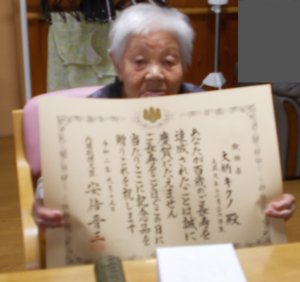 大柄キクノ 殿
あなたが百歳のご長寿を
達成されたことは誠に
慶賀にたえません
ご長寿をことほぐ此の日に
当たりここに記念品を
贈りこれを祝します
令和二年九月十五日
内閣総理大臣 安倍晋三